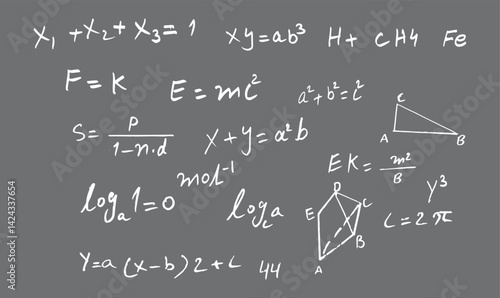 X₁ + X₂ + X₃ = 1 xy = ab³ H+ CH4 Fe
F = K E = mc² a² + b² = c²
S = P / 1-n.d x + y = a²b C A B
EK = m² / B
logₐ1 = 0 mol⁻¹ log꜀a y³
D E C B A C = 2π
Y = a (x-b) 2 + c 44
Adobe Stock | #1424337654